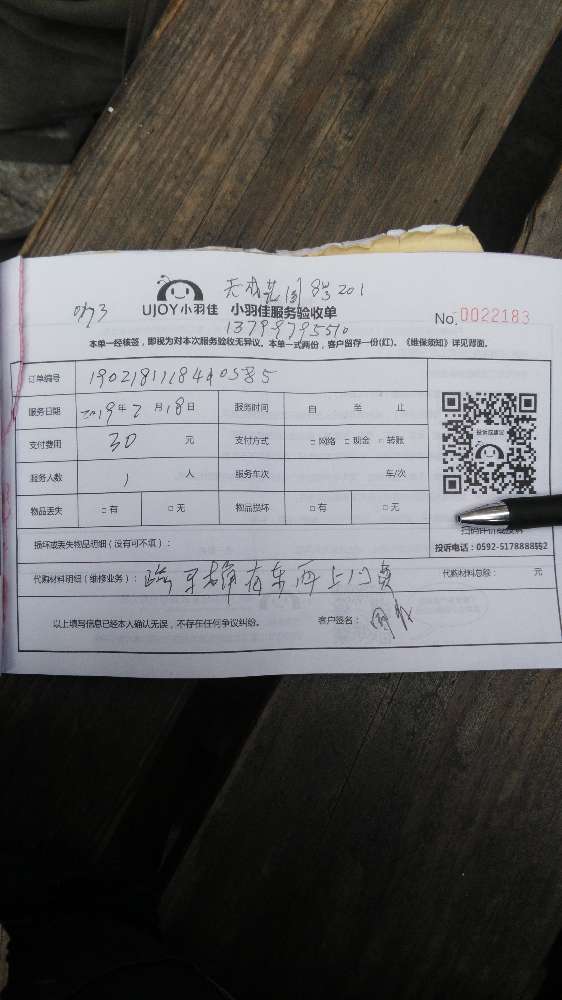 8号201
UJOY小羽佳 小羽佳服务验收单 No.0022183
13799795510
本单一经核签，即视为对本次服务验收无异议。本单一式两份，客户留存一份(红)。《维保须知》详见背面。
订单编号
服务日期 2019年2月18日 服务时间 自 至 止
支付费用 30 元 支付方式 □网络 □现金 □转账
服务人数 1 人 服务车次 车/次
物品丢失 □有 □无 物品损坏 □有 □无
投诉或建议
扫码评价或投诉
投诉电话：0592-5178888转2
损坏或丢失物品明细（没有可不填）：
代购材料明细（维修业务）： 代购材料总额： 元
以上填写信息已经本人确认无误，不存在任何争议纠纷。 客户签名：